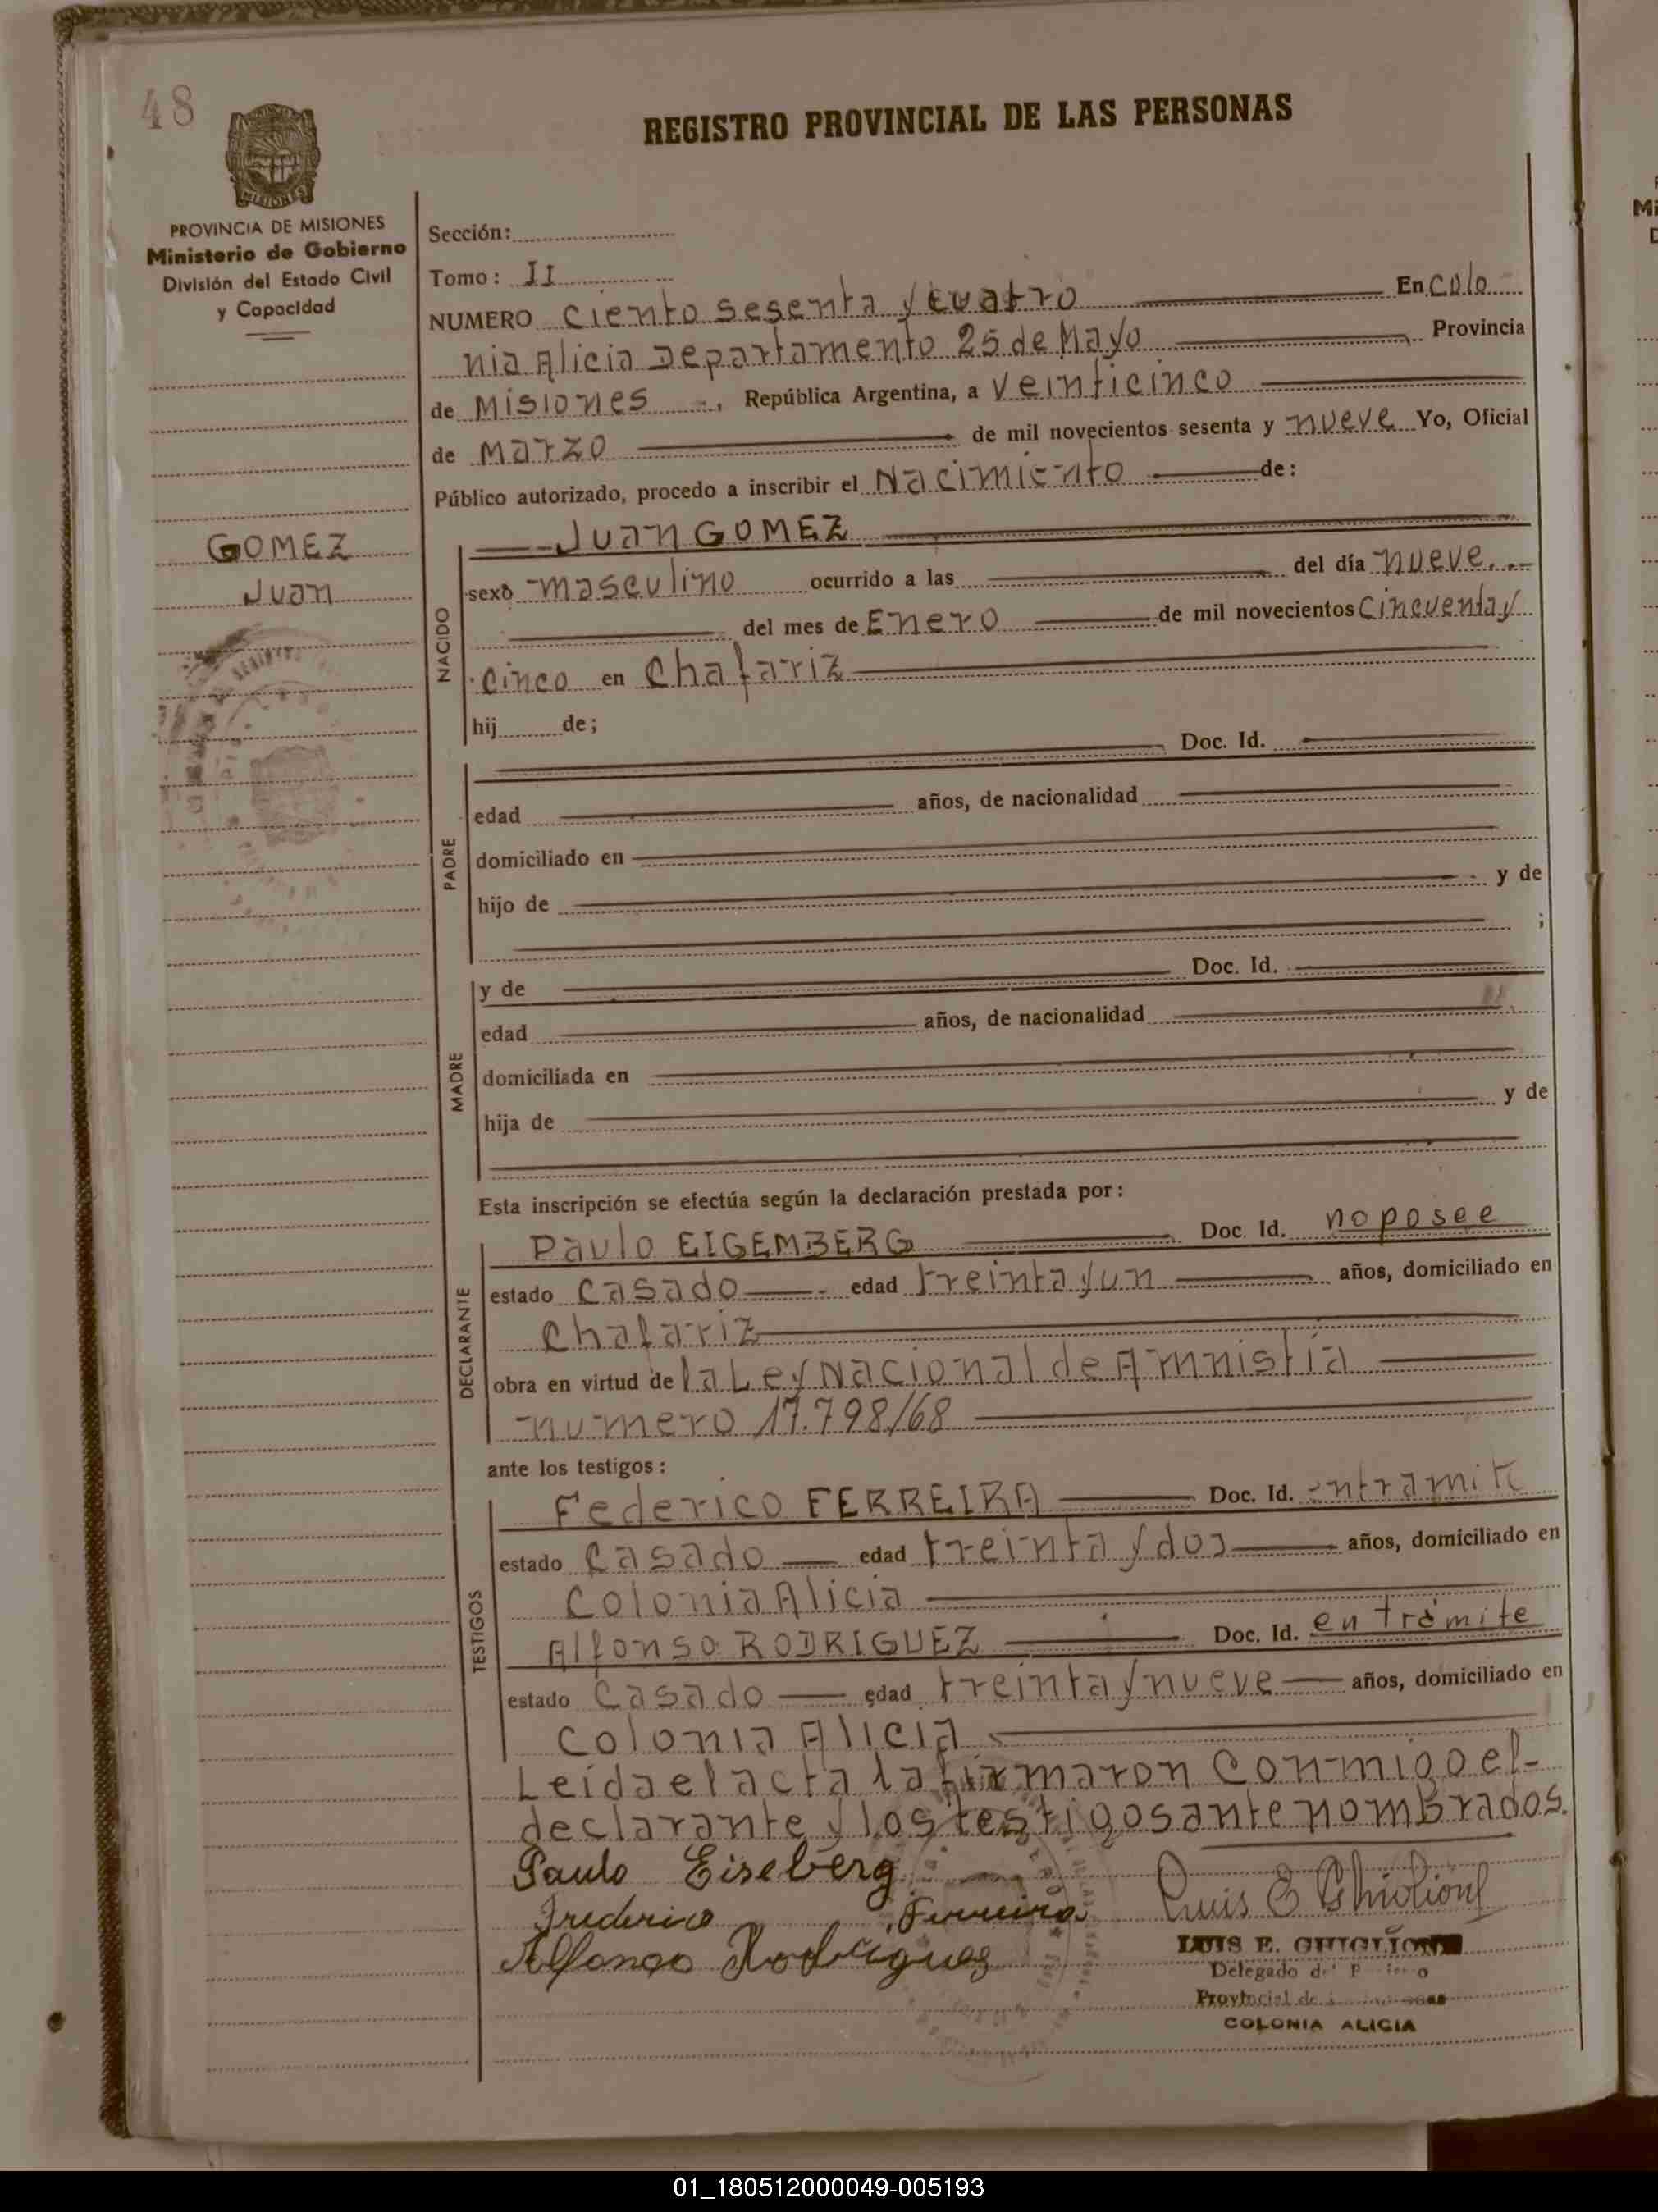 48
REGISTRO PROVINCIAL DE LAS PERSONAS
MISIONES
PROVINCIA DE MISIONES
Ministerio de Gobierno
División del Estado Civil
y Capacidad
GOMEZ
Juan
Sección:
Tomo: II
NUMERO Ciento sesenta y cuatro En Colo
nia Alicia Departamento 25 de Mayo Provincia
de Misiones, República Argentina, a Veinticinco
de Marzo de mil novecientos sesenta y nueve Yo, Oficial
Público autorizado, procedo a inscribir el Nacimiento de:
NACIDO
Juan GOMEZ
sexo masculino ocurrido a las del día nueve
del mes de Enero de mil novecientos Cincuenta y
Cinco en Chafariz
hij de;
PADRE
Doc. Id.
edad años, de nacionalidad
domiciliado en
hijo de y de
;
MADRE
y de Doc. Id.
edad años, de nacionalidad
domiciliada en
hija de y de
Esta inscripción se efectúa según la declaración prestada por:
DECLARANTE
Paulo EIGEMBERG Doc. Id. no posee
estado Casado edad treinta y un años, domiciliado en
Chafariz
obra en virtud de la Ley Nacional de Amnistia
numero 17.798/68
ante los testigos:
TESTIGOS
Federico FERREIRA Doc. Id. entramite
estado Casado edad treinta y dos años, domiciliado en
Colonia Alicia
Alfonso RODRIGUEZ Doc. Id. en trámite
estado Casado edad treinta y nueve años, domiciliado en
Colonia Alicia
Leída el acta la firmaron Conmigo el
declarante y los testigos ante nombrados.
Paulo Eiseberg
Frederico Ferreira
Alfonso Rodrigues
Luis E Ghiglione
LUIS E. GHIGLIONE
Delegado del
Provincial de
COLONIA ALICIA
01_180512000049-005193